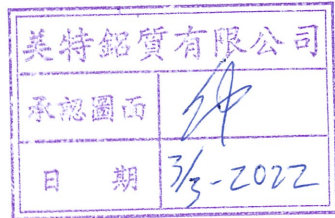 美特鋁質有限公司
承認圖面
日 期 3/3-2022